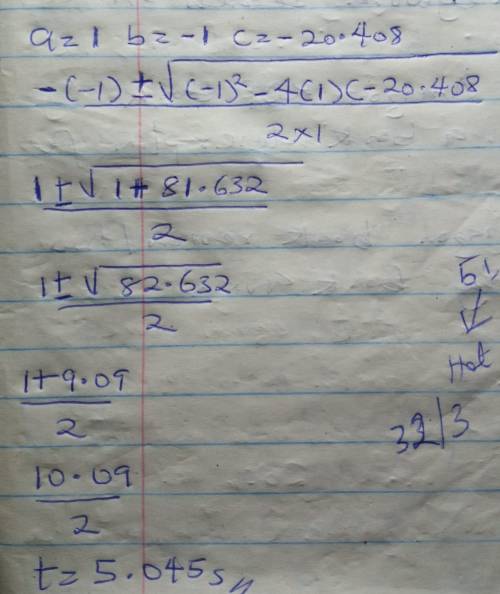 a = 1 b = -1 c = -20.408
-(-1) ± √(-1)² - 4(1)(-20.408
2×1
1 ± √1 + 81.632
2
1 ± √82.632
2
1 + 9.09
2
Hot
10.09
2
t = 5.045s